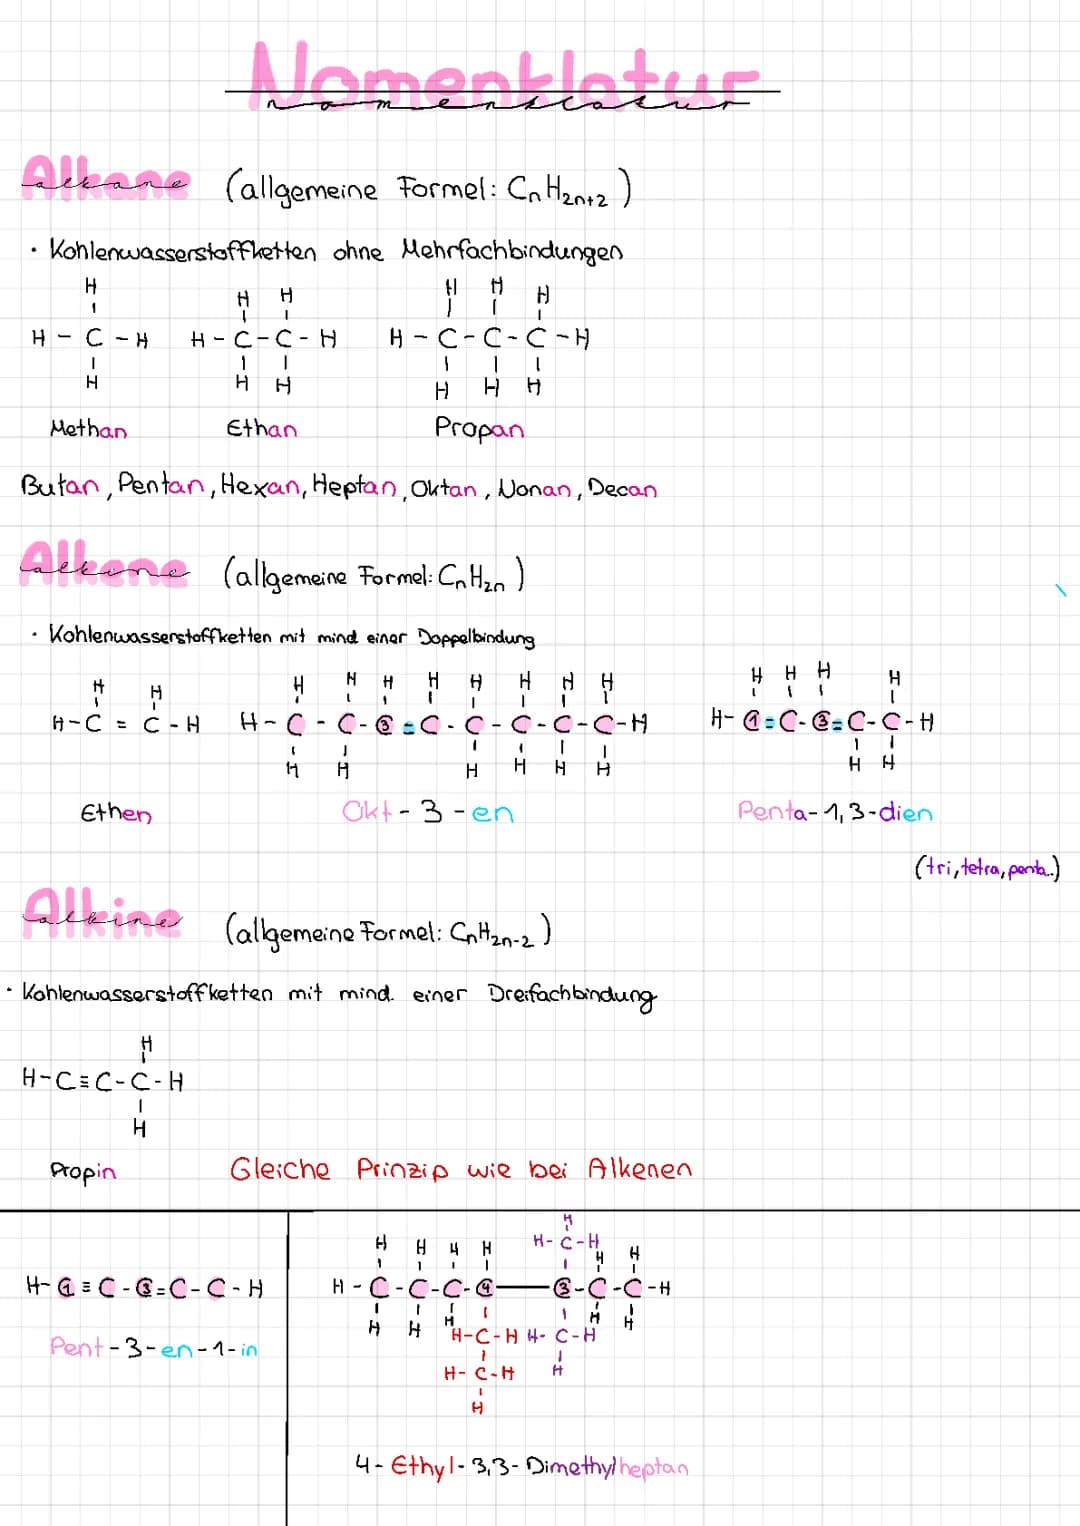 Nomenklatur
nomenklatur
Alkane
alkane
(allgemeine Formel: CnH2n+2)
· Kohlenwasserstoffketten ohne Mehrfachbindungen
H H H H H H
H - C - H H - C - C - H H - C - C - C - H
H H H H H H
Methan Ethan Propan
Butan, Pentan, Hexan, Heptan, Oktan, Nonan, Decan
Alkene
alkene
(allgemeine Formel: CnH2n)
· Kohlenwasserstoffketten mit mind einer Doppelbindung
H H H H H H H H H H H H H H
H - C = C - H H - C - C - 3 = C - C - C - C - C - H H - 1 = C - 3 = C - C - H
H H H H H H H H
Ethen Okt - 3 - en Penta - 1, 3 - dien
(tri, tetra, penta..)
Alkine
alkine
(allgemeine Formel: CnH2n-2)
· Kohlenwasserstoffketten mit mind. einer Dreifachbindung
H
H - C ≡ C - C - H
H
Propin Gleiche Prinzip wie bei Alkenen
H - 1 ≡ C - 3 = C - C - H
Pent - 3 - en - 1 - in
H
H H H H H - C - H H H
H - C - C - C - 4 - 3 - C - C - H
H H H H H
H - C - H H - C - H
H - C - H H
H
4 - Ethyl - 3,3 - Dimethylheptan